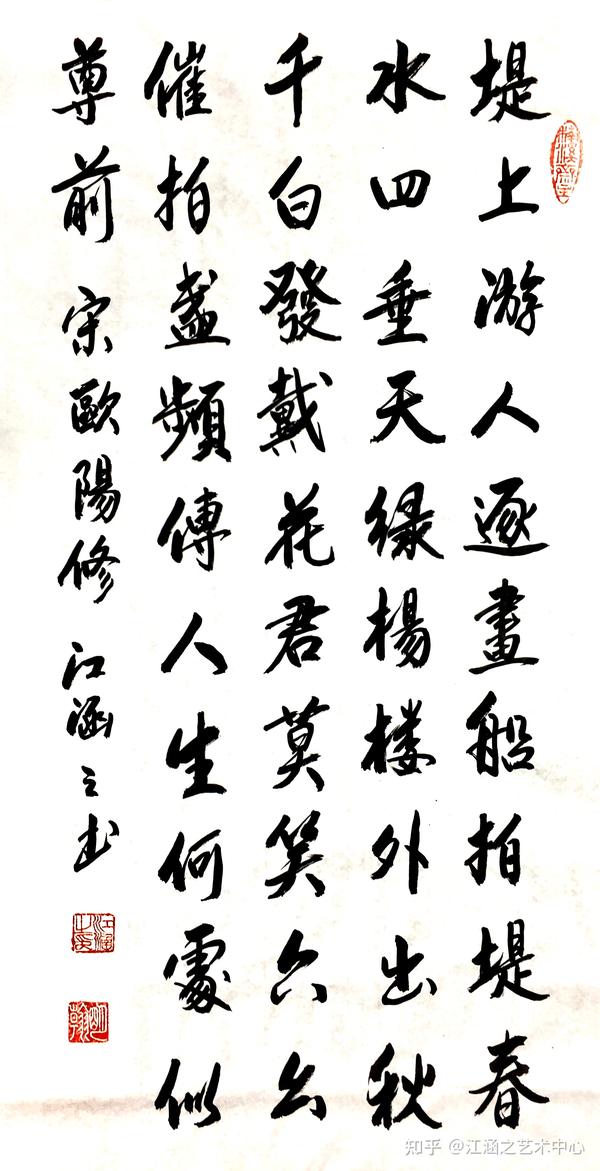 堤上游人逐畫船拍堤春
水四垂天緑楊楼外出秋
千白發戴花君莫笑六幺
催拍盞頻傳人生何處似
尊前 宋歐陽修 江涵之书
知乎 @江涵之艺术中心